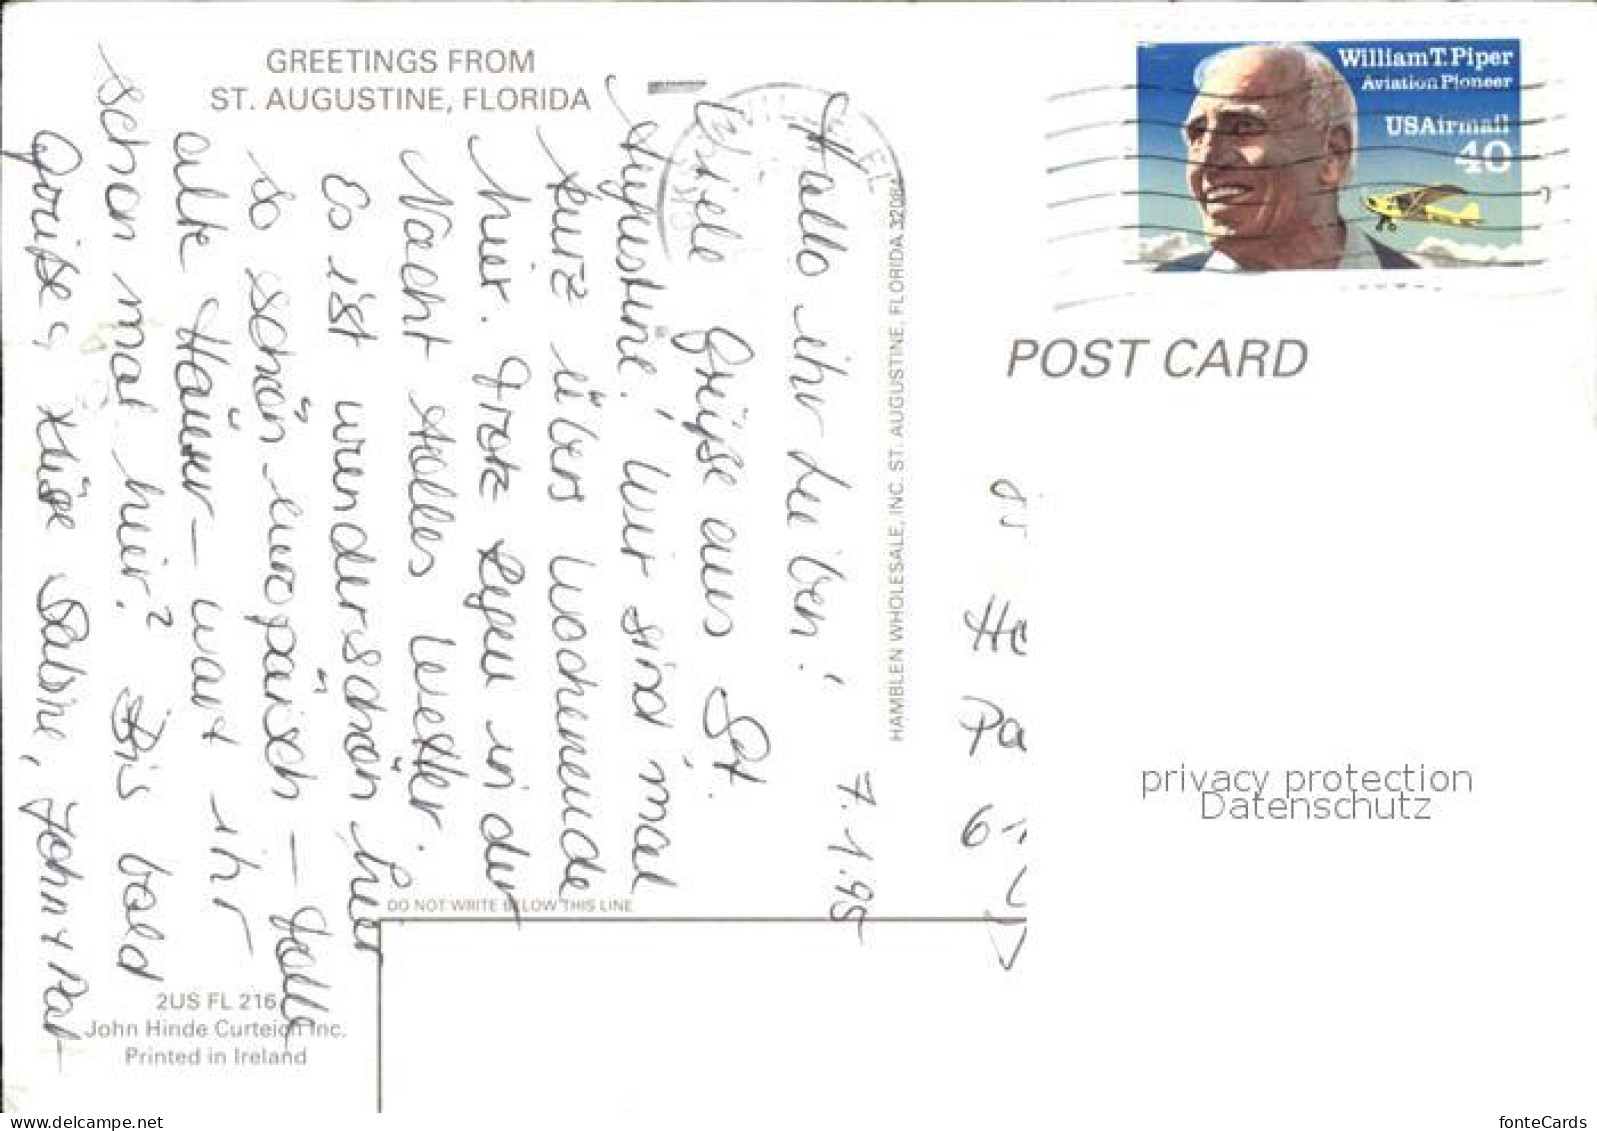 GREETINGS FROM
ST. AUGUSTINE, FLORIDA
7.1.95
Hallo ihr Lieben!
Viele Grüße aus St.
Augustine! Wir sind mal
kurz übers Wochenende
hier. Trotz Regen in der
Nacht tolles Wetter.
Es ist wunderschön hier
so schön europäisch - tolle
alte Häuser - wart ihr
schon mal hier? Bis bald
Grüße, Küsse Sabine, John +
DO NOT WRITE BELOW THIS LINE
2US FL 216
John Hinde Curteich Inc.
Printed in Ireland
HAMBLEN WHOLESALE, INC. ST. AUGUSTINE, FLORIDA 32084
William T. Piper
Aviation Pioneer
USAirmail
40
POST CARD
He
Pa
6-
privacy protection
Datenschutz
www.delcampe.net
fonteCards